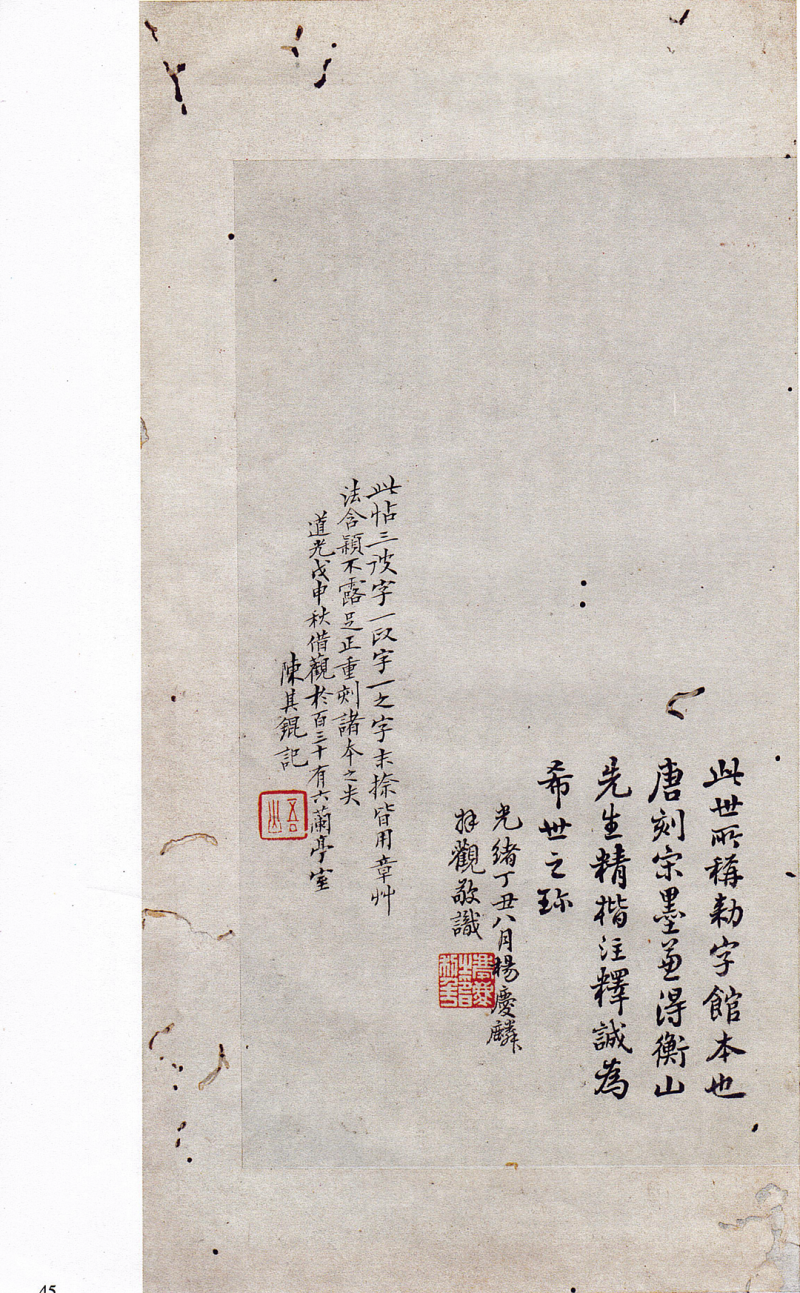 此世所稱勅字館本也
唐刻宋墨兼得衡山
先生精楷注釋誠為
希世之珎
光緒丁丑八月楊慶麟
拜觀敬識
此帖三波字一以字一之字末捺皆用章艸
法含穎不露足正重刻諸本之失
道光戊申秋借觀於百三十有六蘭亭室
陳其錕記
45